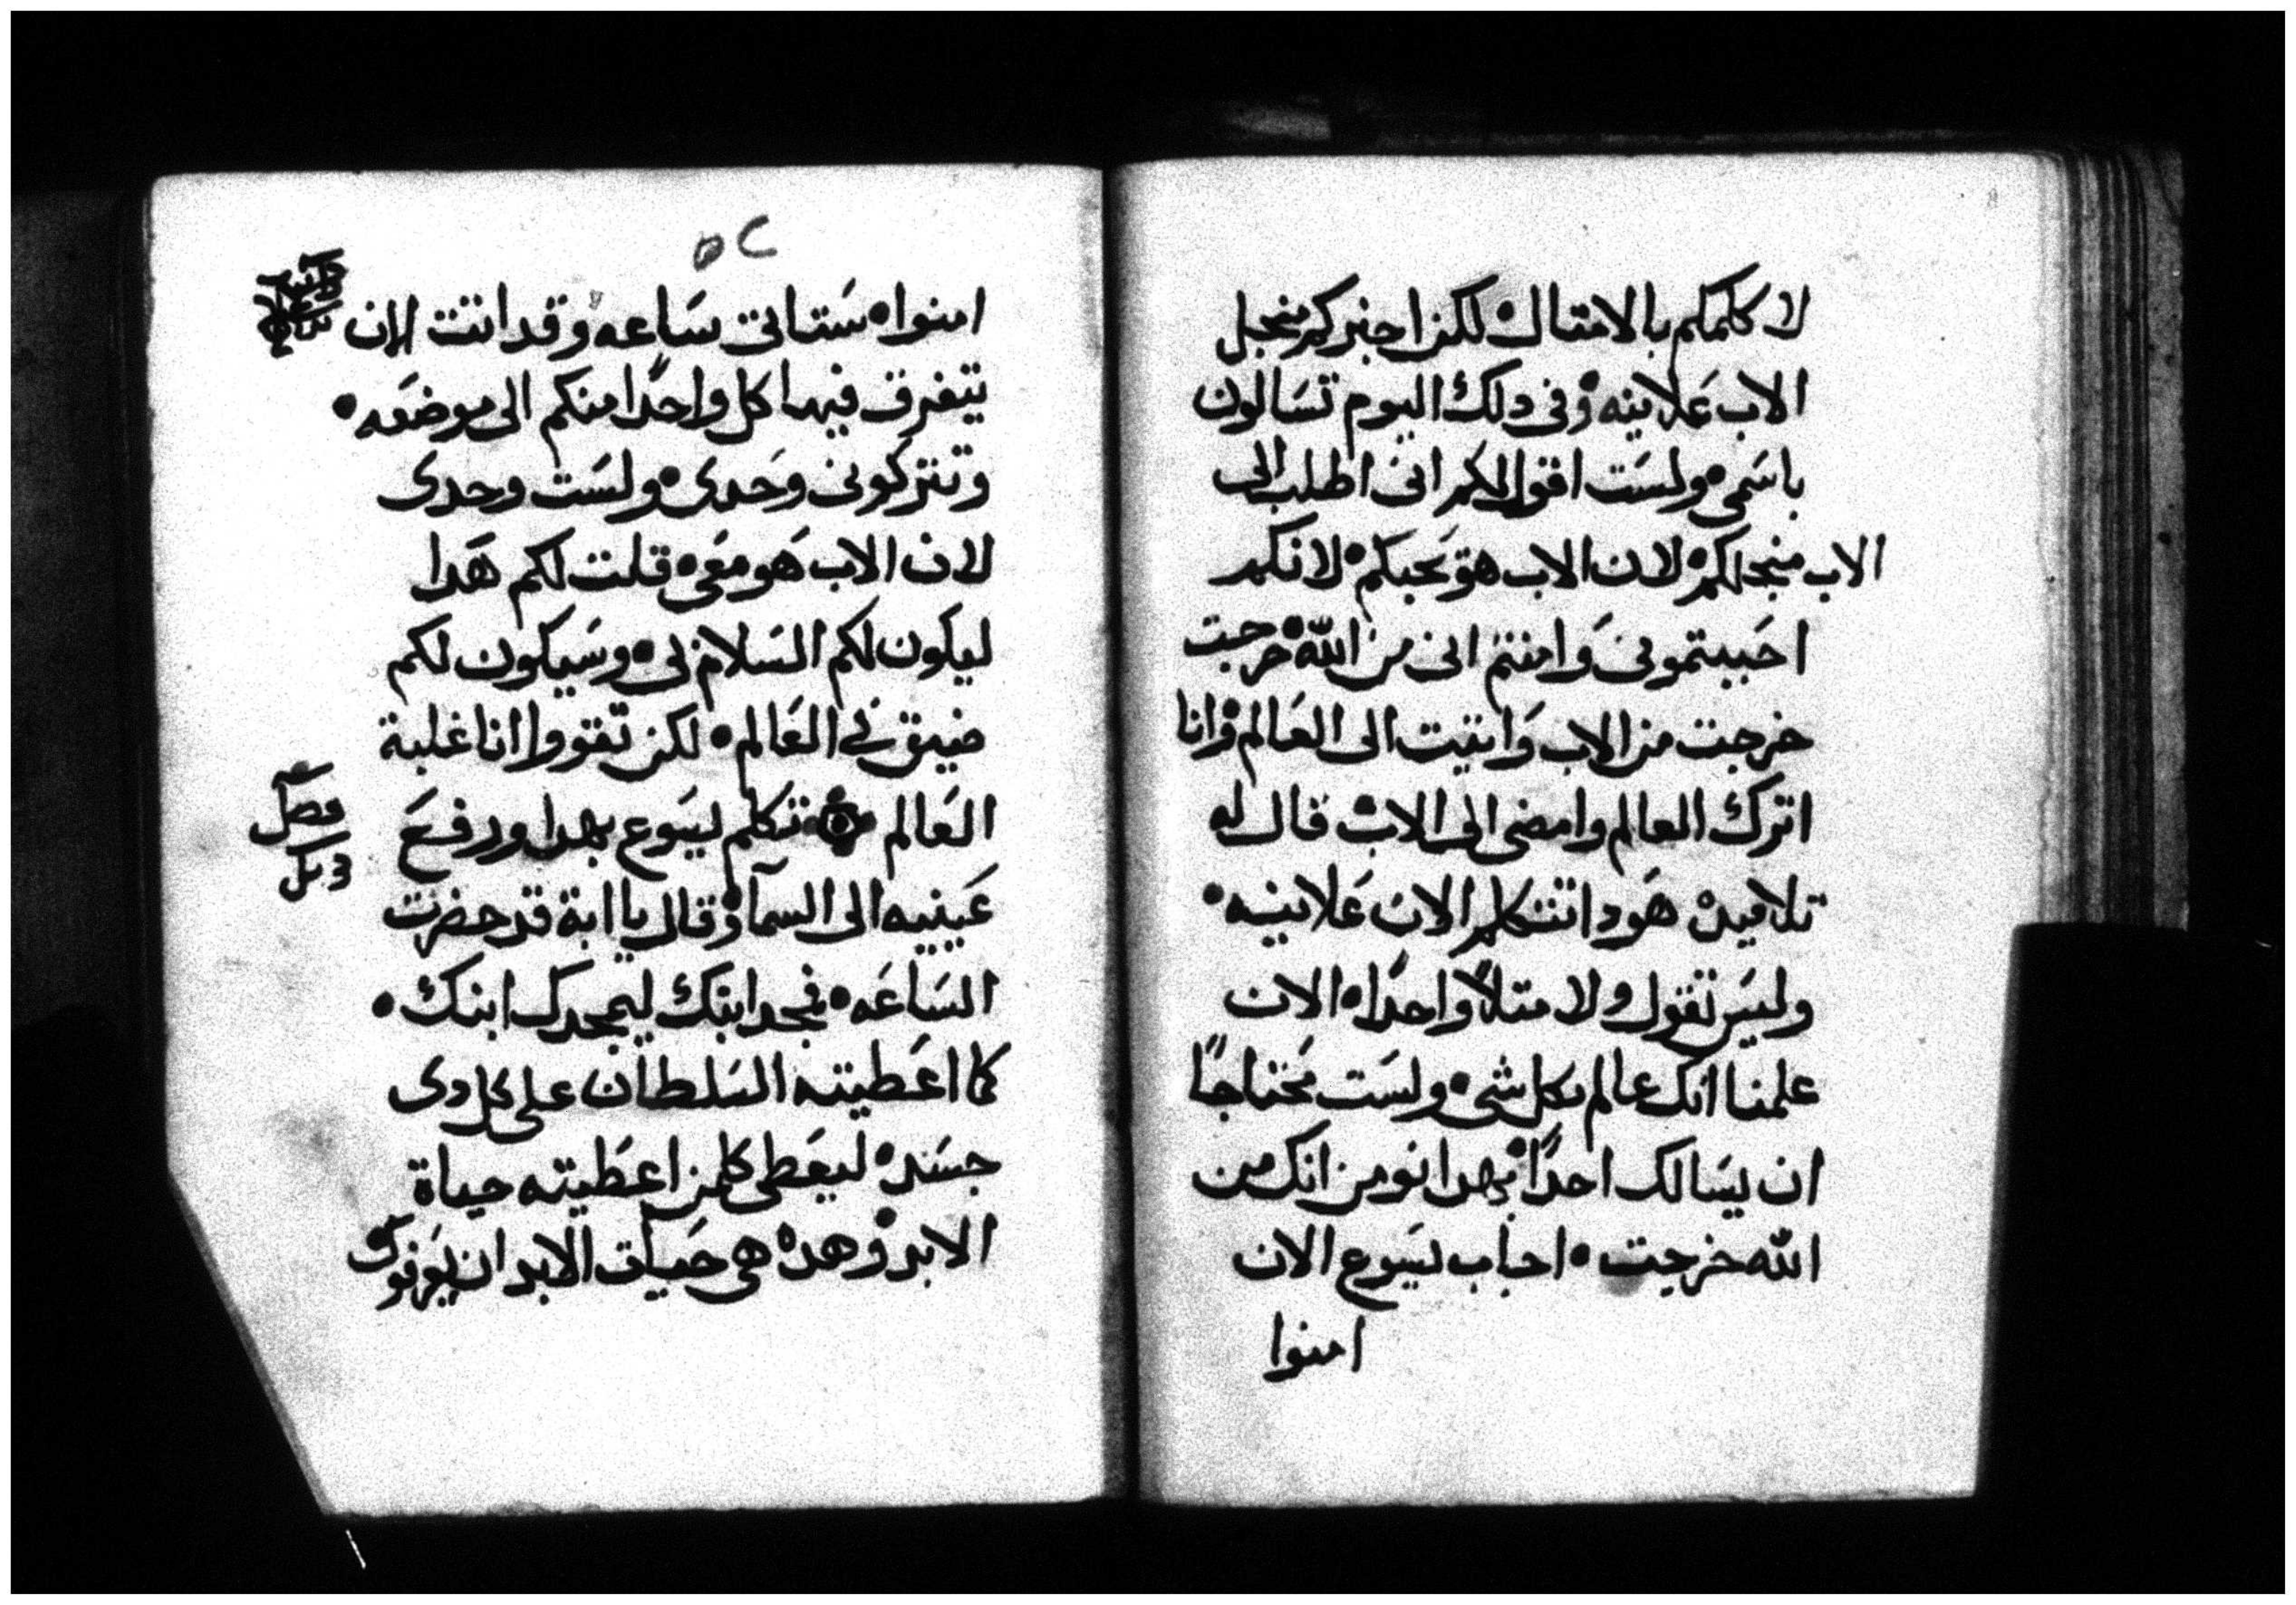 لا كلمكم بالامتال• لكن اخبركم منجل
الاب عَلانيه• وفى دلك اليوم تسَالون
باسَمى• ولسَت اقول لكم انى اطلب الى
الاب منجلكم• لان الاب هو يحبكم• لانكم
احَببتمونى وَامنتم انى من الله• خرجت
خرجت من الاب وَاتيت الى العَالم• وانا
اترك العالم وامضى الى الاب• قال له
تلاميده هَودا تتكلم الان عَلانيه•
وليسَ تقول ولا متلاً واحدًا• الان
علمنا انك عالم بكل شى• ولسَت مَحتاجًا
ان يسَالك احدًا• بهدا نومن انك من
الله خرجت• اجاب يسَوع الان
امنوا
٥٢
امنوا• سَتاتى سَاعه• وقد اتت الان
يتفرق فيها كل واحدًا منكم الى موضعَه•
وتتركونى وحَدى• ولسَت وحدى
لان الاب هَو معَى• قلت لكم هَدا
ليكون لكم السَلام بى• وسَيكون لكم
ضيق فى العَالم• لكن تقووا انا غلبة
العَالم تكلم يسَوع بهدا ورفعَ
عَينيه الى السمآ• وقال يا ابة قد حضرت
السَاعَه• فمجد ابنك ليمجدك ابنك•
كما اعَطيته السَلطان على كل دى
جسَد• ليعَطى كلمن اعَطيته حياة
الابد• وهده هى حَياة الابد ان يعَرفوك
فصل